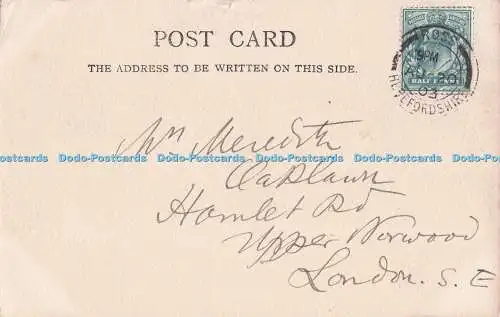 POST CARD
THE ADDRESS TO BE WRITTEN ON THIS SIDE.
ROSS
9PM
AU 20
03
HEREFORDSHIRE
HALFPENNY
Mrs Meredith
Dodo-Postcards Dodo-Postcards Dodo-Postcards Dodo-Postcards Dodo-Postcards Dodo-Postcards
Oaklawn
Hamlet Rd
Upper Norwood
London. S. E